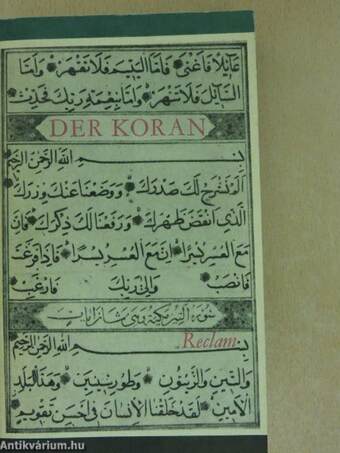 عَائِلًا فَأَغْنَى فَأَمَّا الْيَتِيمَ فَلَا تَقْهَرْ وَأَمَّا
السَّائِلَ فَلَا تَنْهَرْ وَأَمَّا بِنِعْمَةِ رَبِّكَ فَحَدِّثْ
DER KORAN
بِسْمِ اللَّهِ الرَّحْمَنِ الرَّحِيمِ
أَلَمْ نَشْرَحْ لَكَ صَدْرَكَ وَوَضَعْنَا عَنْكَ وِزْرَكَ
الَّذِي أَنْقَضَ ظَهْرَكَ وَرَفَعْنَا لَكَ ذِكْرَكَ فَإِنَّ
مَعَ الْعُسْرِ يُسْرًا إِنَّ مَعَ الْعُسْرِ يُسْرًا فَإِذَا فَرَغْتَ
فَانْصَبْ وَإِلَى رَبِّكَ فَارْغَبْ
سورة التين مكية وهي ثمان ايات
بِسْمِ اللَّهِ الرَّحْمَنِ الرَّحِيمِ
Reclam
وَالتِّينِ وَالزَّيْتُونِ وَطُورِ سِينِينَ وَهَذَا الْبَلَدِ
الْأَمِينِ لَقَدْ خَلَقْنَا الْإِنْسَانَ فِي أَحْسَنِ تَقْوِيمٍ
Antikvárium.hu